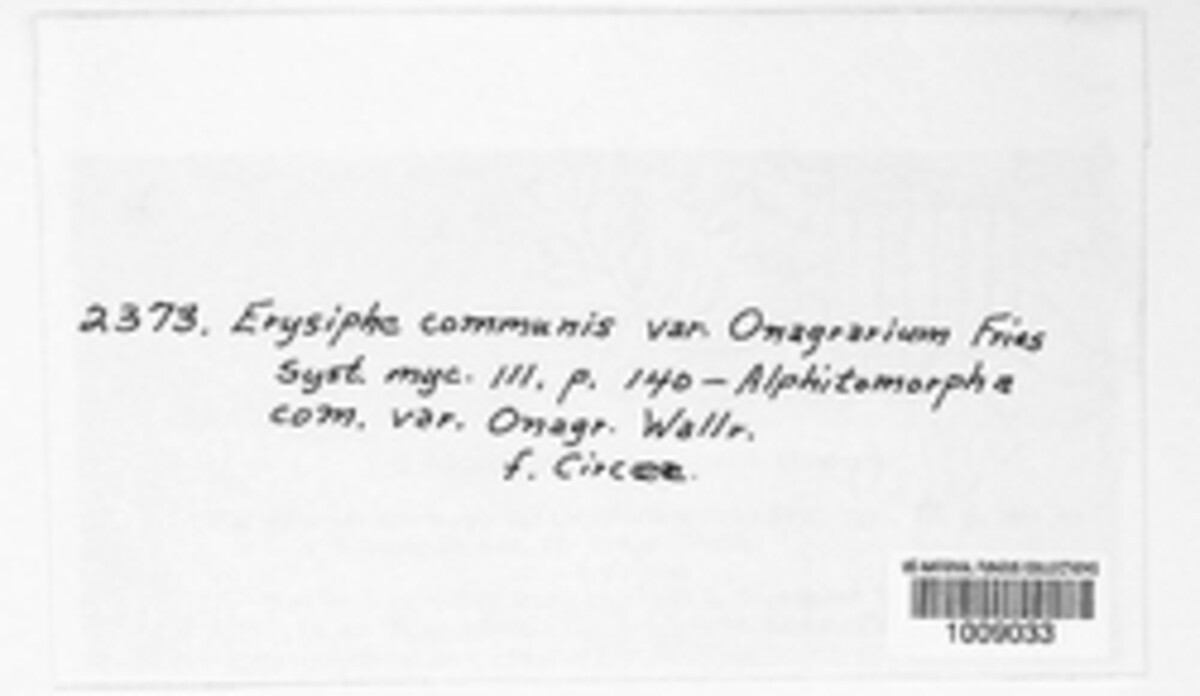 2373. Erysiphe communis var. Onagrarium Fries
Syst. myc. III. p. 140 – Alphitomorpha
com. var. Onagr. Wallr.
f. Circeæ.
US NATIONAL FUNGUS COLLECTIONS
1009033